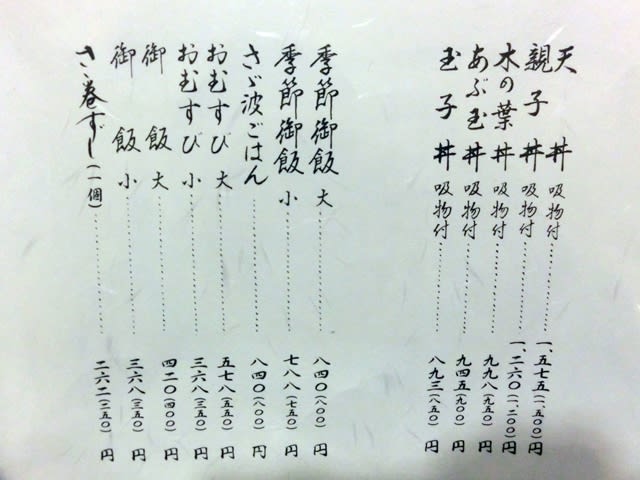 天丼 吸物付…………一、五七五(一、五〇〇)円
親子丼 吸物付…………一、二六〇(一、二〇〇)円
木の葉丼 吸物付…………九九八(九五〇)円
あぶ玉丼 吸物付…………九四五(九〇〇)円
玉子丼 吸物付…………八九三(八五〇)円
季節御飯 大…………八四〇(八〇〇)円
季節御飯 小…………七八八(七五〇)円
さゞ波ごはん…………八四〇(八〇〇)円
おむすび 大…………五七八(五五〇)円
おむすび 小…………三六八(三五〇)円
御飯 大…………四二〇(四〇〇)円
御飯 小…………三六八(三五〇)円
さゝ巻ずし(一個)…………二六二(二五〇)円